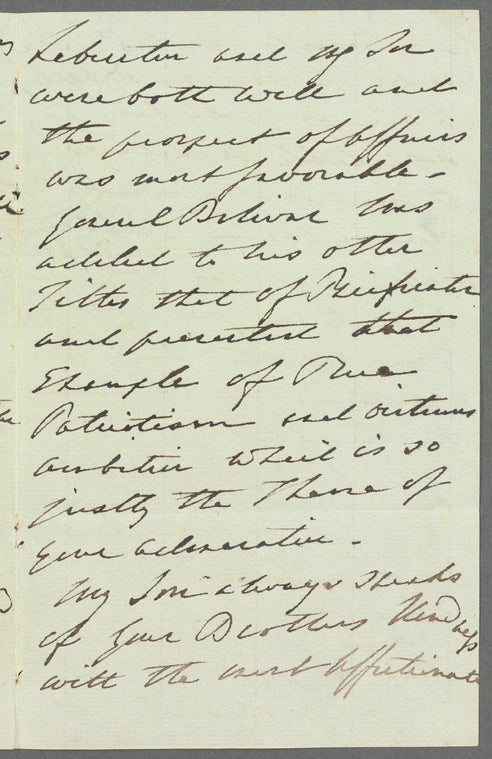 Liberator and my Son
were both well and
the prospect of Affairs
was most favorable -
General Bolivar has
added to his other
Titles that of Pacificator
and presented that
Example of True
Patriotism and virtuous
ambition which is so
justly the Theme of
your admiration -
My Son always speaks
of your Brothers Kindness
with the most Affectionate